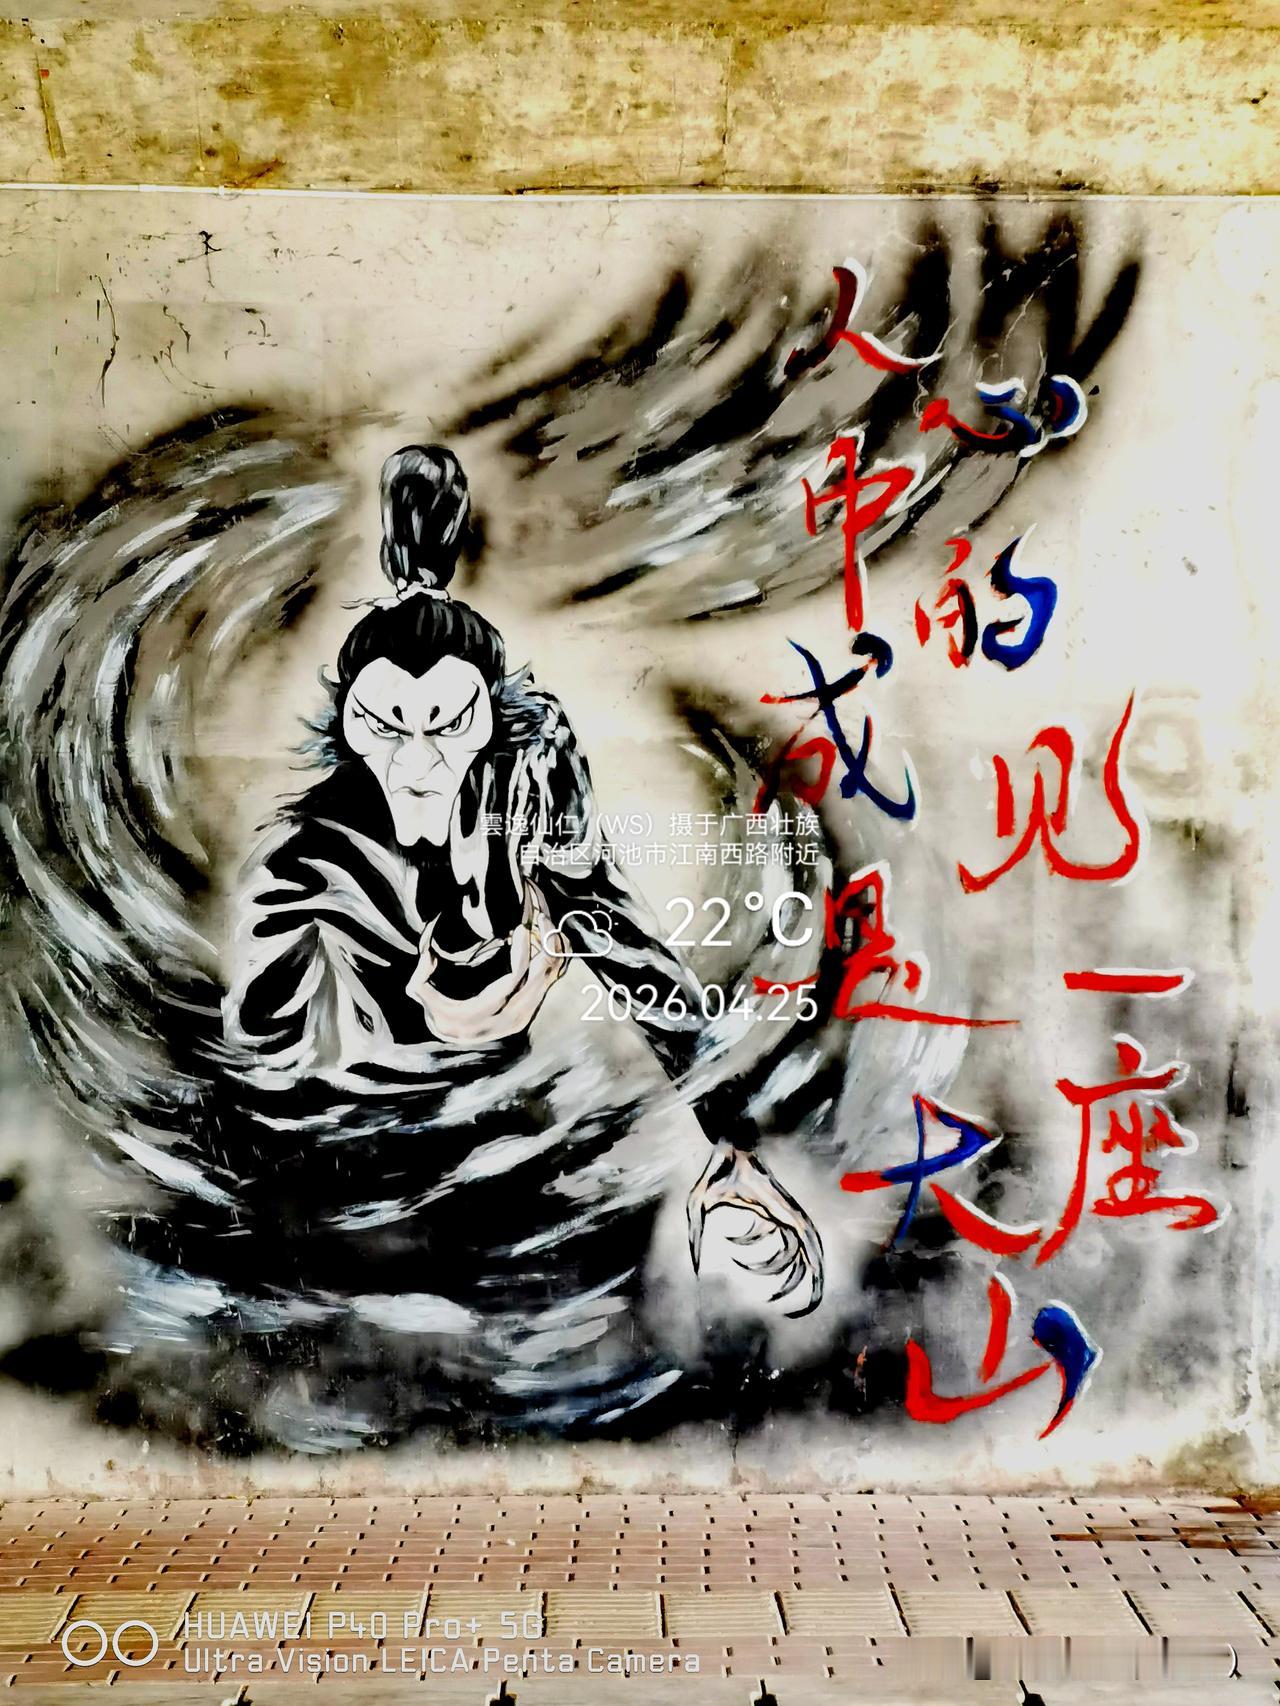 人心中的成见是一座大山
雲逸仙仁（WS）摄于广西壮族
自治区河池市江南西路附近
22°C
2026.04.25
HUAWEI P40 Pro+ 5G
Ultra Vision LEICA Penta Camera